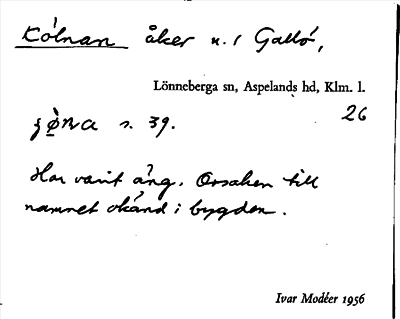 Kölnan åker n. / Gallö,
Lönneberga sn, Aspelands hd, Klm. l.
26
s. 39.
Har varit äng. Orsaken till
namnet okänd i bygden.
Ivar Modéer 1956